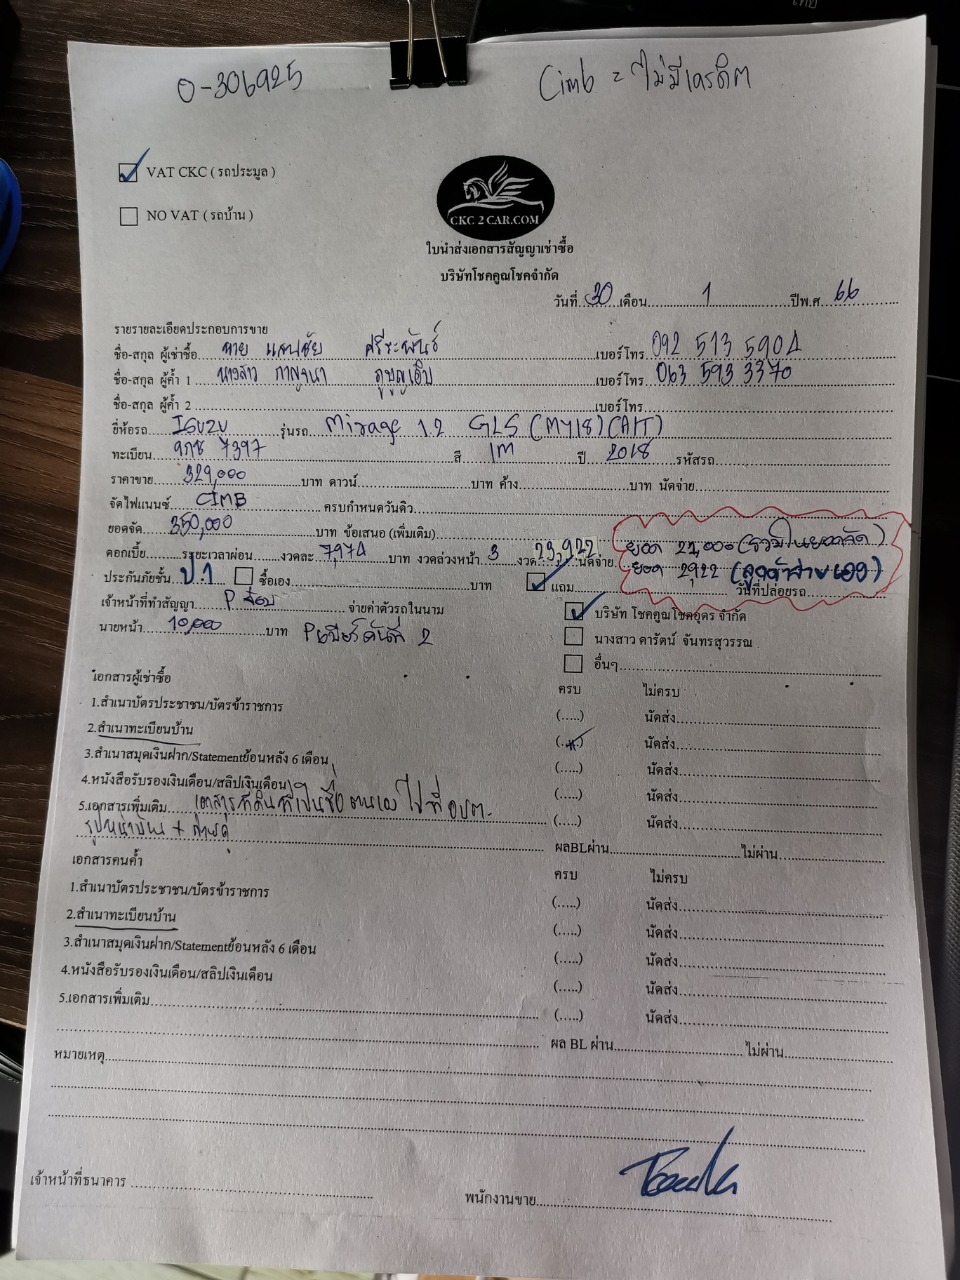 0-306925
Cimb = ไม่มีเครดิต
VAT CKC ( รถประมูล )
NO VAT ( รถบ้าน )
CKC 2 CAR.COM
ใบนำส่งเอกสารสัญญาเช่าซื้อ
บริษัทโชคคูณโชคจำกัด
วันที่ 30 เดือน 1 ปีพ.ศ. 66
รายรายละเอียดประกอบการขาย
ชื่อ-สกุล ผู้เช่าซื้อ นาย แสนชัย ศรีระพันธ์ เบอร์โทร 092 513 5904
ชื่อ-สกุล ผู้ค้ำ 1 นางสาว กาญจนา เบอร์โทร 063 593 3370
ชื่อ-สกุล ผู้ค้ำ 2 เบอร์โทร
ยี่ห้อรถ ISUZU รุ่นรถ Mirage 1.2 GLS (MY18) (A/T)
ทะเบียน 7397 สี เทา ปี 2018 รหัสรถ
ราคาขาย 329,000 บาท ดาวน์ บาท ค้าง บาท นัดจ่าย
จัดไฟแนนซ์ CIMB ครบกำหนดวันดิว
ยอดจัด 350,000 บาท ข้อเสนอ (เพิ่มเติม) ยอด 21,000 (รวมในยอดจัด)
ดอกเบี้ย ระยะเวลาผ่อน งวดละ 7,974 บาท งวดล่วงหน้า 3 งวด 23,922 นัดจ่าย ยอด 2,922 (ลูกค้าจ่ายเอง)
ประกันภัยชั้น ป.1 ซื้อเอง บาท แถม วันที่ปล่อยรถ
เจ้าหน้าที่ทำสัญญา จ่ายค่าตัวรถในนาม บริษัท โชคคูณโชคอุดร จำกัด
นายหน้า 10,000 บาท นางสาว ดารัตน์ จันทรสุวรรณ
อื่นๆ
เอกสารผู้เช่าซื้อ ครบ ไม่ครบ
1.สำเนาบัตรประชาชน/บัตรข้าราชการ (.....) นัดส่ง
2.สำเนาทะเบียนบ้าน (.....) นัดส่ง
3.สำเนาสมุดเงินฝาก/Statementย้อนหลัง 6 เดือน (.....) นัดส่ง
4.หนังสือรับรองเงินเดือน/สลิปเงินเดือน (.....) นัดส่ง
5.เอกสารเพิ่มเติม เอกสารที่ดินที่เป็นชื่อตนเอง ไปที่ อบต. (.....) นัดส่ง
รูปหน้าบ้าน + ถ่ายคู่ ผลBLผ่าน ไม่ผ่าน
เอกสารคนค้ำ ครบ ไม่ครบ
1.สำเนาบัตรประชาชน/บัตรข้าราชการ (.....) นัดส่ง
2.สำเนาทะเบียนบ้าน (.....) นัดส่ง
3.สำเนาสมุดเงินฝาก/Statementย้อนหลัง 6 เดือน (.....) นัดส่ง
4.หนังสือรับรองเงินเดือน/สลิปเงินเดือน (.....) นัดส่ง
5.เอกสารเพิ่มเติม (.....) นัดส่ง
ผล BL ผ่าน ไม่ผ่าน
หมายเหตุ
เจ้าหน้าที่ธนาคาร พนักงานขาย